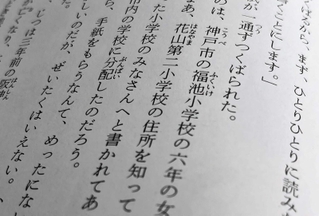 るから、まず、ひとりひとりに読み
ことにします。」
が一通ずつくばられた。
のは、神戸市の福池小学校の六年の女
あ、花山第二小学校の住所を知って
た小学校のみなさんへと書かれてあ
市内の学校に分配したのだろう。
、手紙をもらうなんて、めったにな
しいのだが、ぜいたくはいえない。
しは三年前の